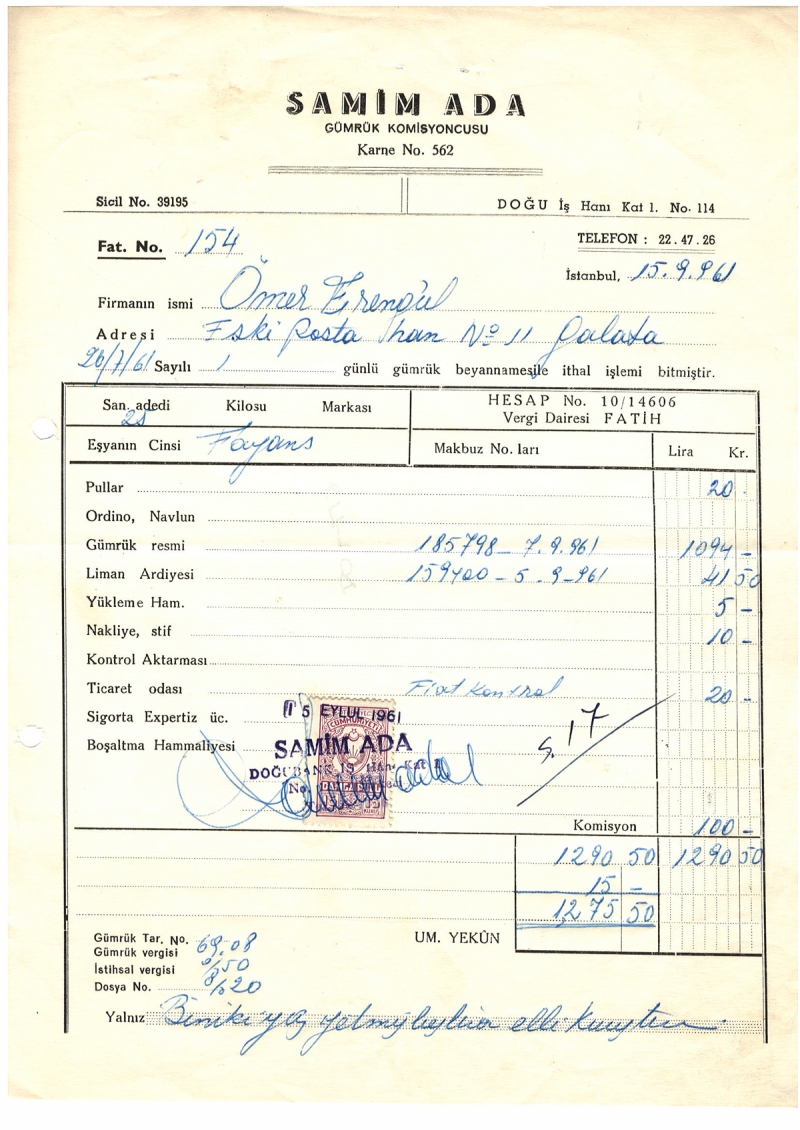 SAMİM ADA
GÜMRÜK KOMİSYONCUSU
Karne No. 562
Sicil No. 39195
DOĞU İş Hanı Kat 1. No. 114
Fat. No. 154
TELEFON : 22.47.26
İstanbul, 15.9.961
Firmanın ismi Ömer Erengül
Adresi Eski Posta Han No 11 Galata
26/7/61 Sayılı 1 günlü gümrük beyannamesile ithal işlemi bitmiştir.
San. adedi Kilosu Markası
25
HESAP No. 10/14606
Vergi Dairesi FATİH
Eşyanın Cinsi Fayans
Makbuz No. ları
Lira Kr.
Pullar 20 -
Ordino, Navlun
Gümrük resmi 185798 - 7.9.961 1094 -
Liman Ardiyesi 159400 - 5.9-961 41 50
Yükleme Ham. 5 -
Nakliye, stif 10 -
Kontrol Aktarması
Ticaret odası Fiat Kontrol 20 -
Sigorta Expertiz üc.
15 EYLÜL 1961
CUMHURİYETİ
Boşaltma Hammaliyesi
SAMİM ADA
DOĞUBANK İŞ Hanı Kat 1
No
S. 17
Komisyon 100 -
1290 50 1290 50
15 -
1275 50
UM. YEKÛN
Gümrük Tar. No. 69.08
Gümrük vergisi
İstihsal vergisi
Dosya No.
Yalnız Biniki yüz yetmişbeşlira elli kuruştur